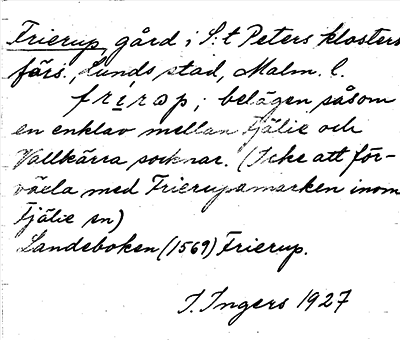 Frierup, gård i S:t Peters klosters
förs., Lunds stad, Malm. l.
frírəp, i belägen såsom
en enklav mellan Fjälie och
Vallkärra socknar. (Icke att för-
växla med Frierupamarken inom
Fjälie sn)
Landeboken (1569) Frierup.
I. Ingers 1927